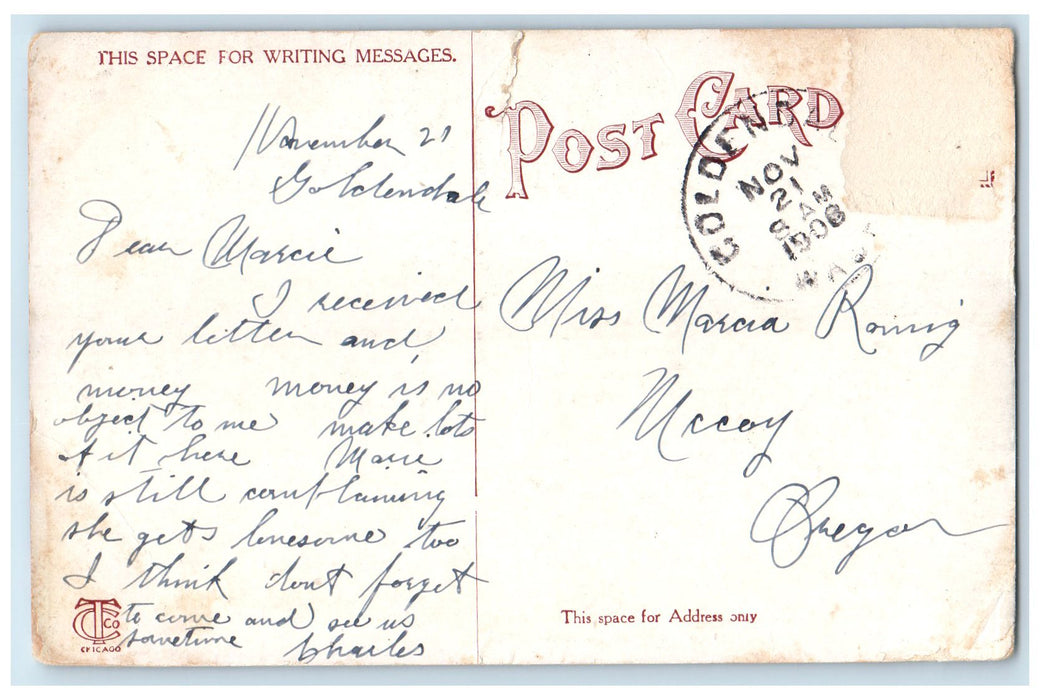 THIS SPACE FOR WRITING MESSAGES.
November 21
Goldendale
Dear Marcie
I received
your letter and
money money is no
object to me make lots
of it here Marie
is still complaining
she gets lonesome too
I think dont forget
to come and see us
sometime Charles
TCCo
CHICAGO
POST CARD
GOLDENDA
NOV
21
8 AM
1908
WASH
Miss Marcia Romig
Mccoy
Oregon
This space for Address only